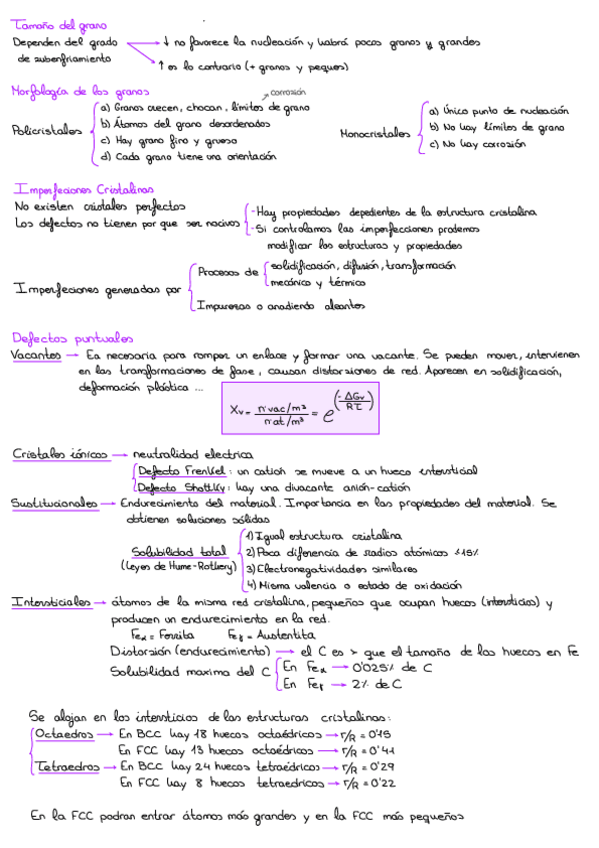 Tamaño del grano
Dependen del grado → ↓ no favorece la nucleación y habrá pocos granos y grandes
de subenfriamiento → ↑ es lo contrario (+ granos y peques)
Morfología de los granos
corrosión
Policristales
a) Granos crecen, chocan, límites de grano
b) Átomos del grano desordenados
c) Hay grano fino y grueso
d) Cada grano tiene una orientación
Monocristales
a) Único punto de nucleación
b) No hay límites de grano
c) No hay corrosión
Imperfeciones Cristalinas
No existen cristales perfectos
Los defectos no tienen por que ser nocivos
- Hay propiedades depedientes de la estructura cristalina
- Si controlamos las imperfecciones prodemos
modificar los estructuras y propiedades
Imperfeciones generadas por
Procesos de
solidificación, difusión, transformación
mecánico y térmico
Impurezas o anadiendo aleantes
Defectos puntuales
Vacantes → Ea necesaria para romper un enlace y formar una vacante. Se pueden mover, intervienen
en las transformaciones de fase, causan distorsiones de red. Aparecen en solidificación,
deformación plástica ...
Xv = nº vac/m³ / nº at/m³ = e^(-ΔGv / RT)
Cristales iónicos → neutralidad electrica
Defecto Frenkel: un catión se mueve a un hueco intersticial
Defecto Shottky: hay una divacante anión-catión
Sustitucionales → Endurecimiento del material. Importancia en las propiedades del material. Se
obtienen soluciones sólidas
Solubilidad total
(Leyes de Hume-Rothery)
1) Igual estructura cristalina
2) Poca diferencia de radios atómicos ±15%
3) Electronegatividades similares
4) Misma valencia o estado de oxidación
Intersticiales → átomos de la misma red cristalina, pequeños que ocupan huecos (intersticios) y
producen un endurecimiento en la red.
Feα = Ferrita Feγ = Austentita
Distorsión (endurecimiento) → el C es > que el tamaño de los huecos en Fe
Solubilidad maxima del C
En Feα → 0'025% de C
En Feγ → 2% de C
Se alojan en los intersticios de las estructuras cristalinas:
Octaedros → En BCC hay 18 huecos octaédricos → r/R = 0'15
En FCC hay 13 huecos octaédricos → r/R = 0'41
Tetraedros → En BCC hay 24 huecos tetraédricos → r/R = 0'29
En FCC hay 8 huecos tetraedricos → r/R = 0'22
En la FCC podran entrar átomos más grandes y en la FCC más pequeños